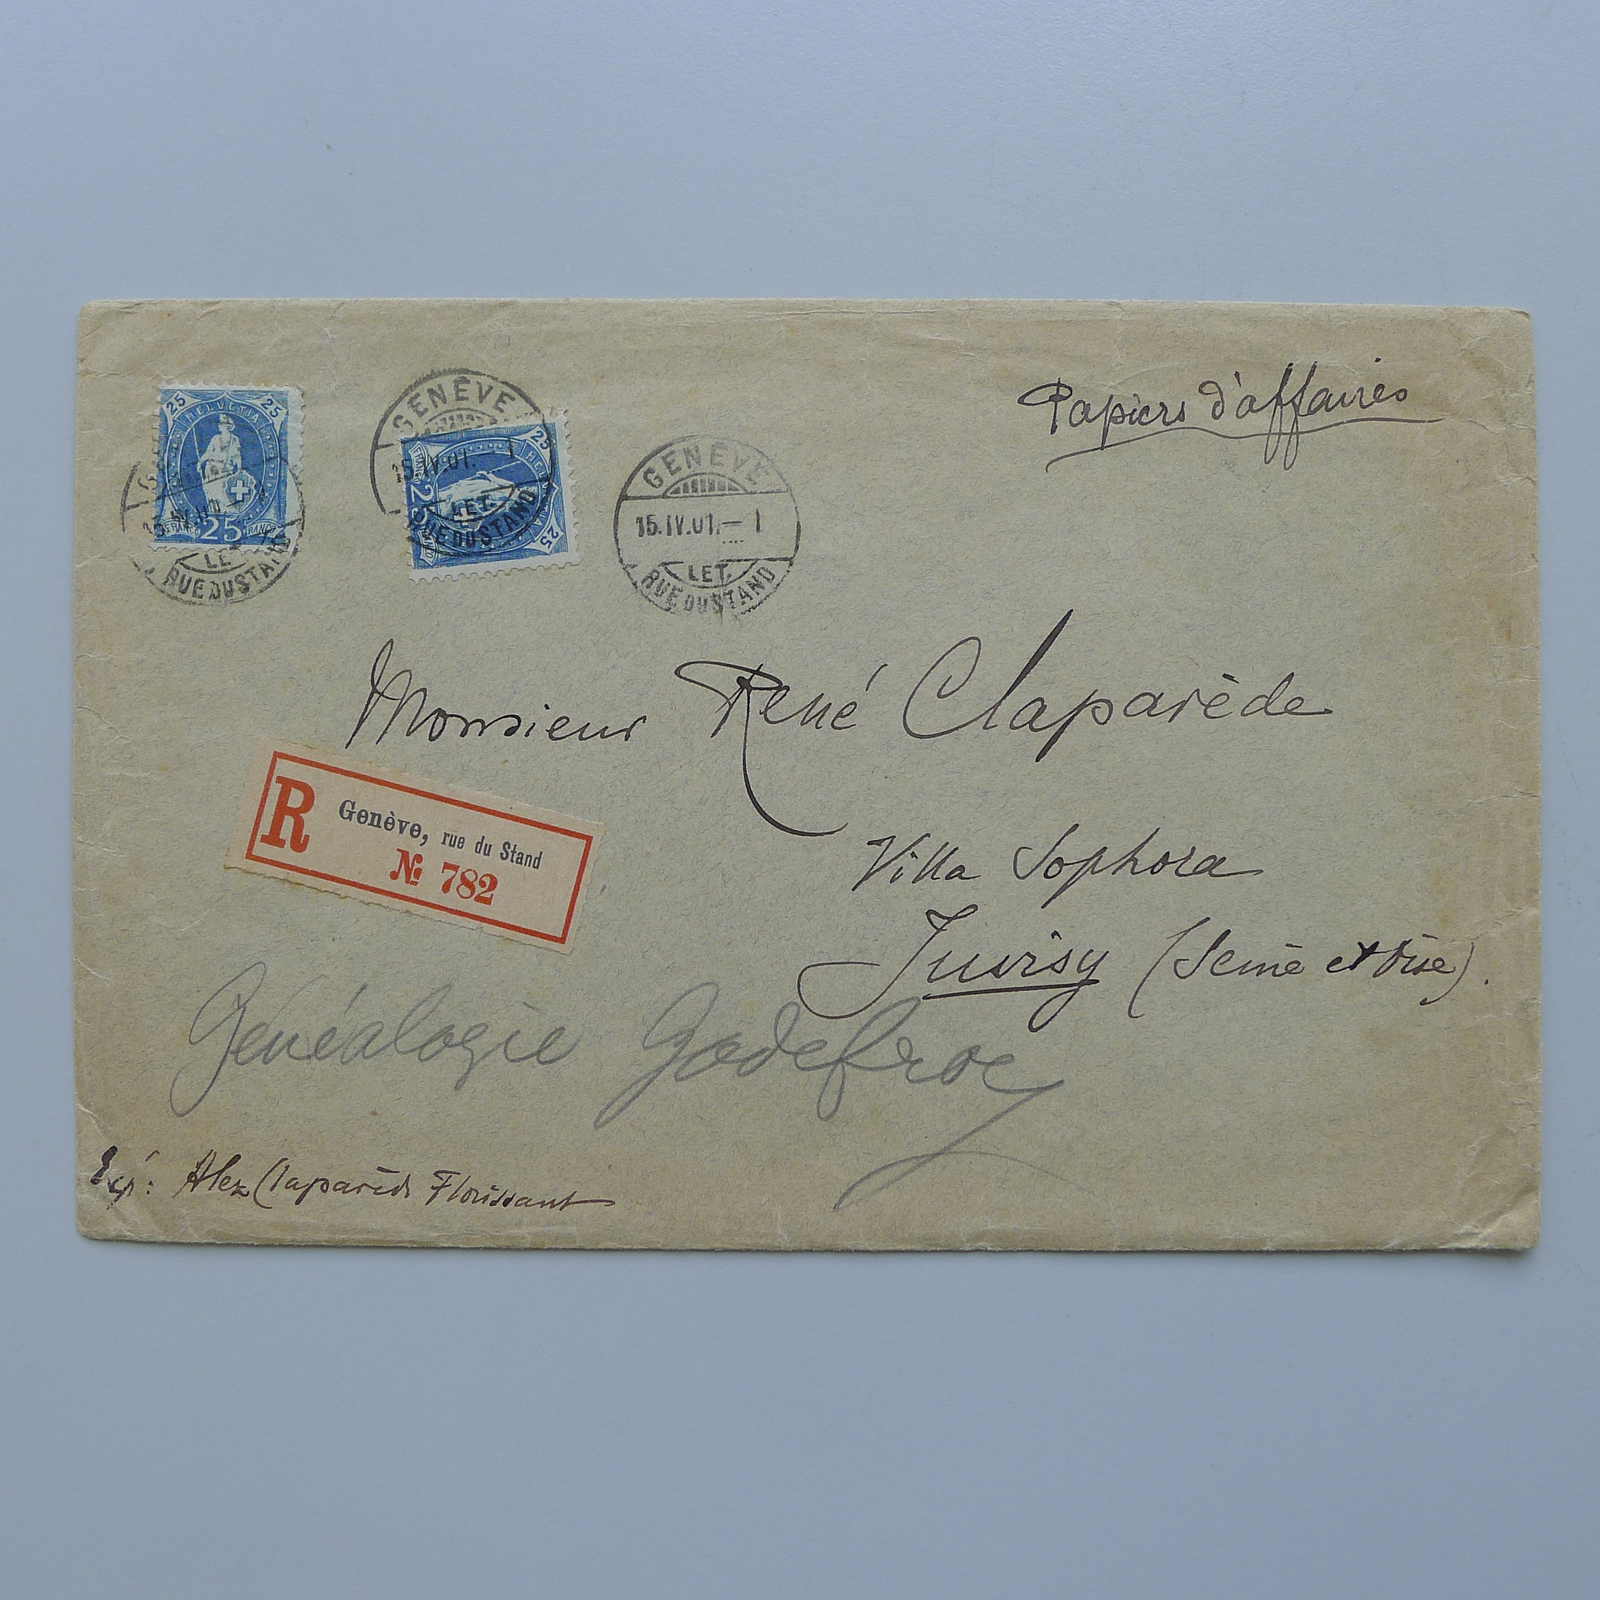 Papiers d'affaires
25 HELVETIA 25
25
FRANCO FRANCO
GENÈVE
15.IV.01.
LET.
RUE DU STAND
25 HELVETIA 25
25
GENÈVE
15.IV.01. - 1
LET.
RUE DU STAND
GENÈVE
15.IV.01. - 1
LET.
RUE DU STAND
Monsieur René Claparède
R Genève, rue du Stand
№ 782
Villa Sophora
Juvisy (Seine et Oise).
Généalogie Godefroy
Exp: Alex Claparède Florissant